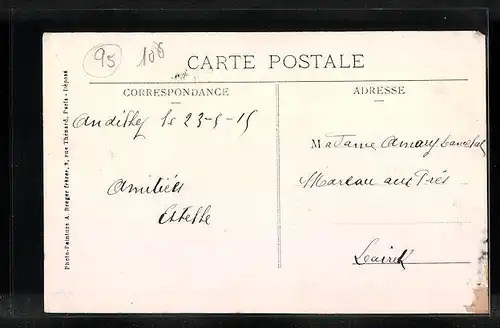 95 108
CARTE POSTALE
CORRESPONDANCE
ADRESSE
Andilly le 23-5-15
Amitiés
Estelle
Madame Amary
Mareau aux Prés
Loiret
Photo-Peinture A. Breger frères, 9, rue Thénard, Paris - Déposé